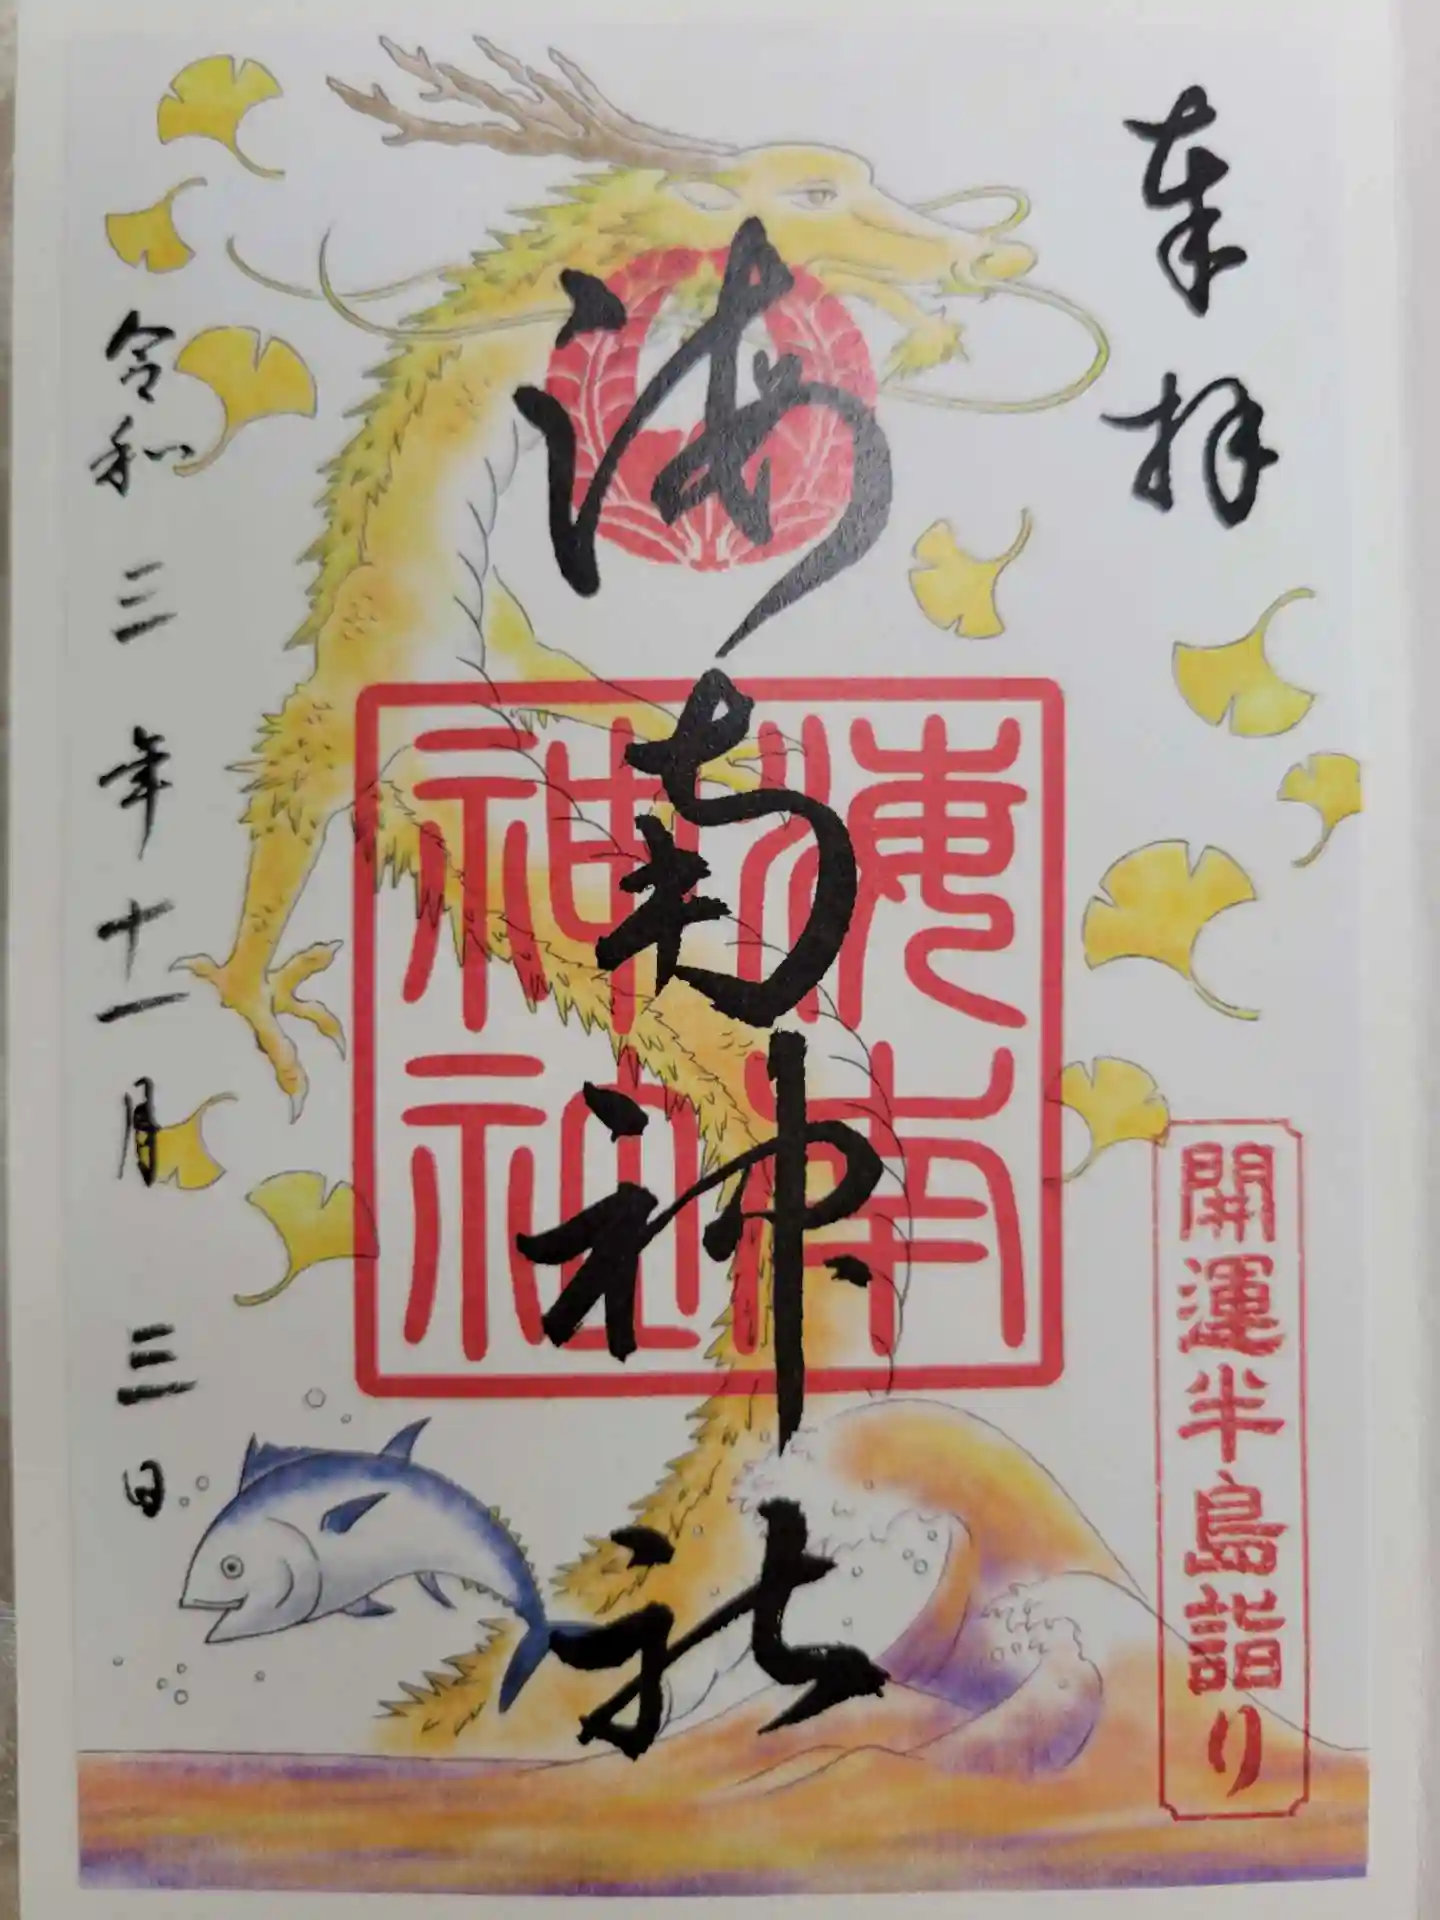 奉拝
開運半島詣り
海南神社
海南
神社
令和三年十一月三日